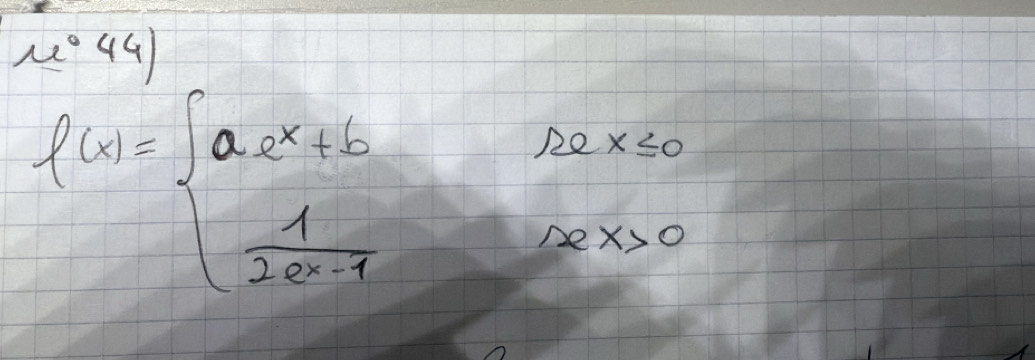 n° 44)
f(x) = { a e^x + b se x ≤ 0
1 / (2ex - 1) se x > 0